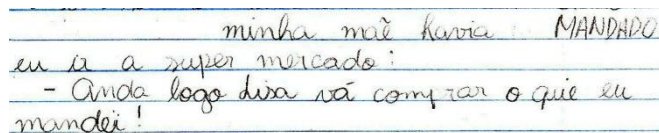 minha mãe havia MANDADO
eu ir a super mercado:
- Anda logo disa vá comprar o que eu
mandei!